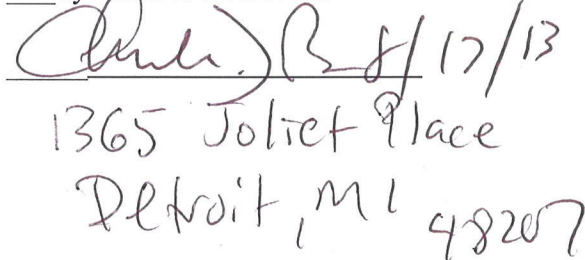 8/17/13
1365 Joliet Place
Detroit, MI 48207